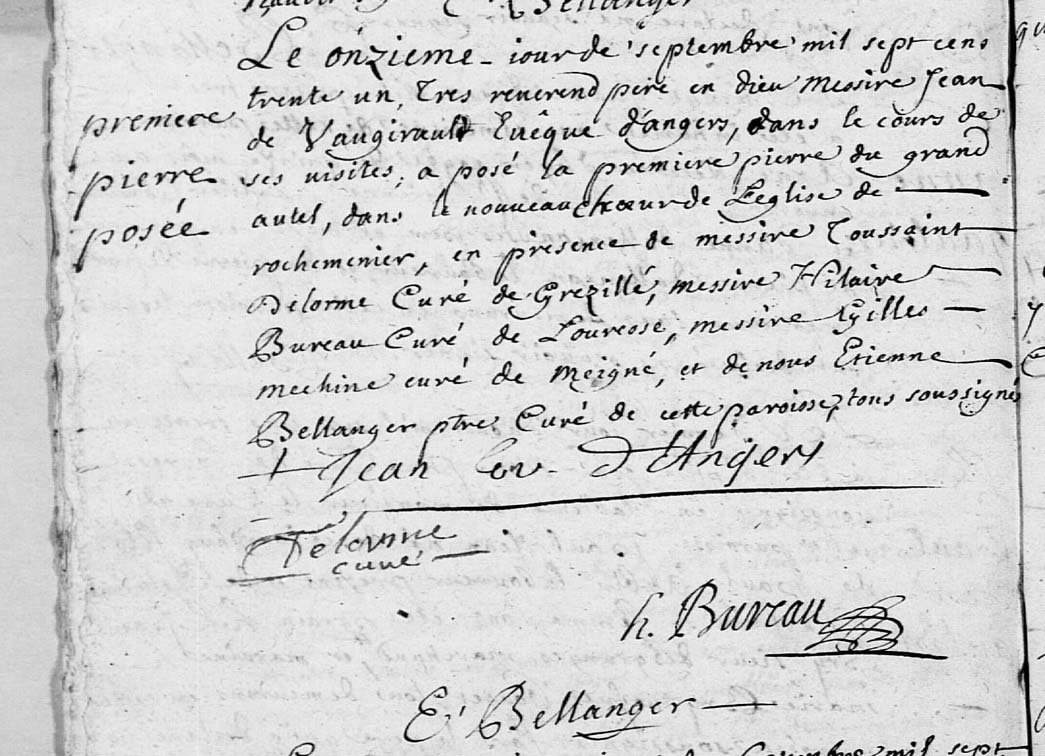 Bellanger
Le onzieme jour de septembre mil sept cens
trente un, Tres reverend pere en dieu Messire Jean
de Vaugirault Evêque d'angers, dans le cours de
ses visites, a posé la premiere pierre du grand
autel, dans le nouveau choeur de L'eglise de
rochemenier, en presence de messire Toussaint
Delorme Curé de Grezillé, messire Hilaire
Bureau Curé, de Louresse, messire Gilles
mechine curé de Meigné, et de nous Etienne
Bellanger ptre Curé de cette paroisse, tous soussignés
premiere
pierre
posée
+ Jean Ev. d'Angers
Delorme
curé
h. Bureau
E. Bellanger
mil sept